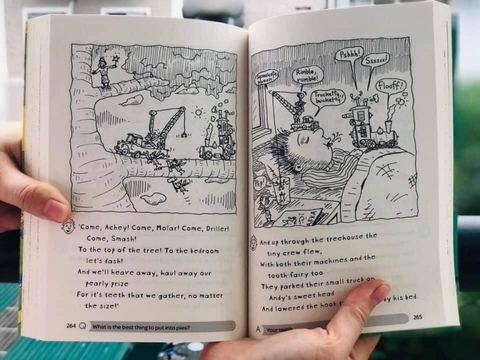 'Come, Achey! Come, Molar! Come, Driller!
Come, Smash!
To the top of the tree! To the bedroom
let's dash!
And we'll heave away, haul away our
pearly prize
For it's teeth that we gather, no matter
the size!'
264 Q What is the best thing to put into pies?
Rumble,
rumble!
Pshhh!
Sssss!
Fluuff!
And up through the treehouse the
tiny crew flew,
With both their machines and the
tooth fairy too.
They parked their small truck on
Andy's sweet head
And lowered the hook
by his bed.
A Your teeth
265